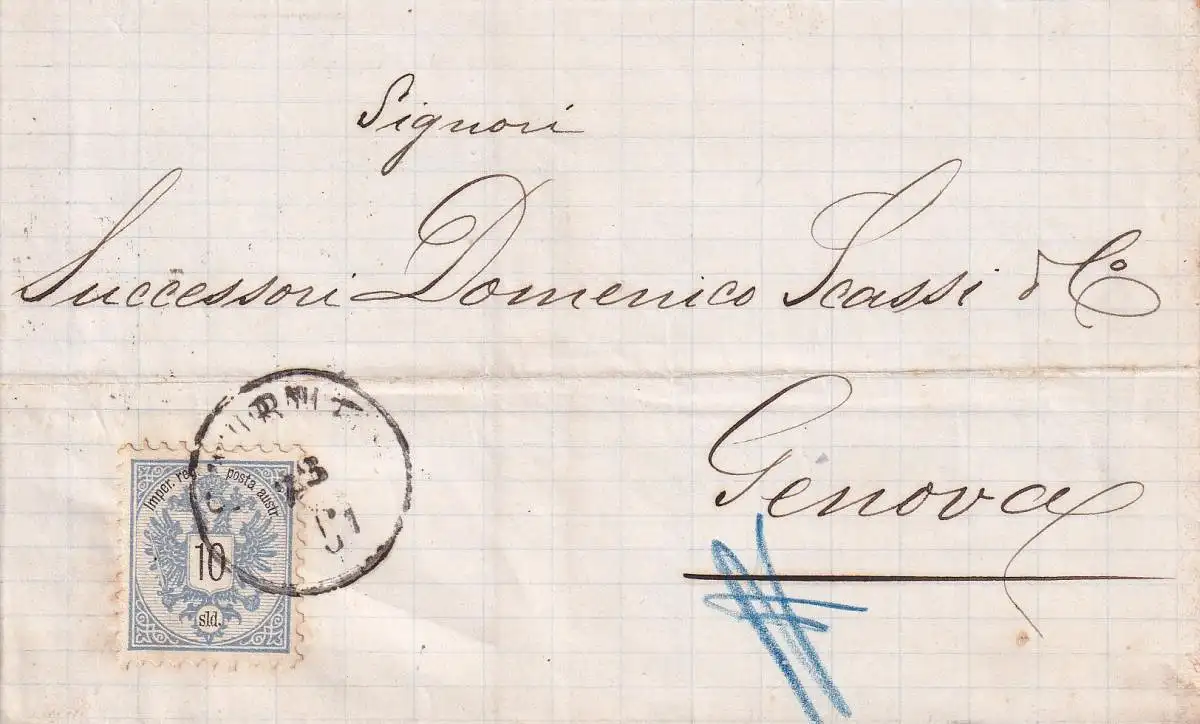 Signori
Successori Domenico Scassi & Cº
Genova
Imper. reg. posta austr.
10
sld.